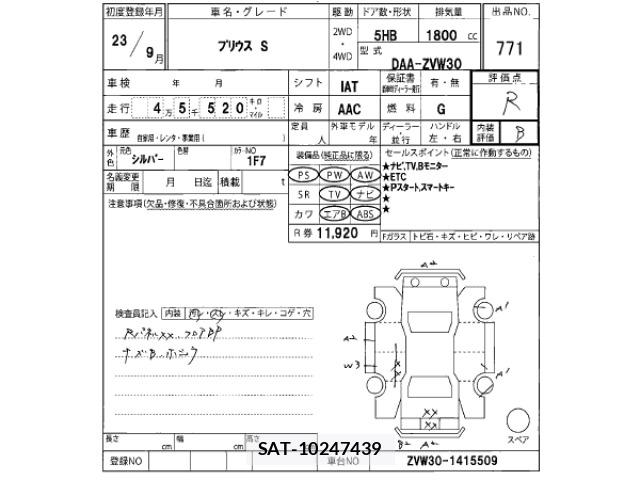 初度登録年月 車名・グレード 駆動 ドア数・形状 排気量 出品NO.
23/9月 プリウス S 2WD・4WD 5HB 1800 cc 771
型式 DAA-ZVW30
車検 年 月 シフト IAT 保証書 有・無 評価点
走行 4万5千520 キロ・マイル 冷房 AAC 燃料 G R
車歴 自家用・レンタ・事業用( ) 定員 人 外車モデル 年 ディーラー・並行 ハンドル 左・右 内装評価 B
外色 元色 シルバー 色替 カラーNO 1F7 装備品(純正品に限る) セールスポイント(正常に作動するもの)
名義変更期限 月 日迄 積載 t PS PW AW ★ナビ,TV,Bモニター
★ETC
★Pスタート,スマートキー
★
★
注意事項(欠品・修復・不具合箇所および状態) SR TV ナビ
カワ エアB ABS
R券 11,920 円 Fガラス トビ石・キズ・ヒビ・ワレ・リペア跡
A2
検査員記入 内装 汚レ・スレ・キズ・キレ・コゲ・穴
A1
A2
W3
A1
XX
B2 A2
スペア
長さ cm 幅 cm 高さ
SAT-10247439
登録NO 車台NO ZVW30-1415509